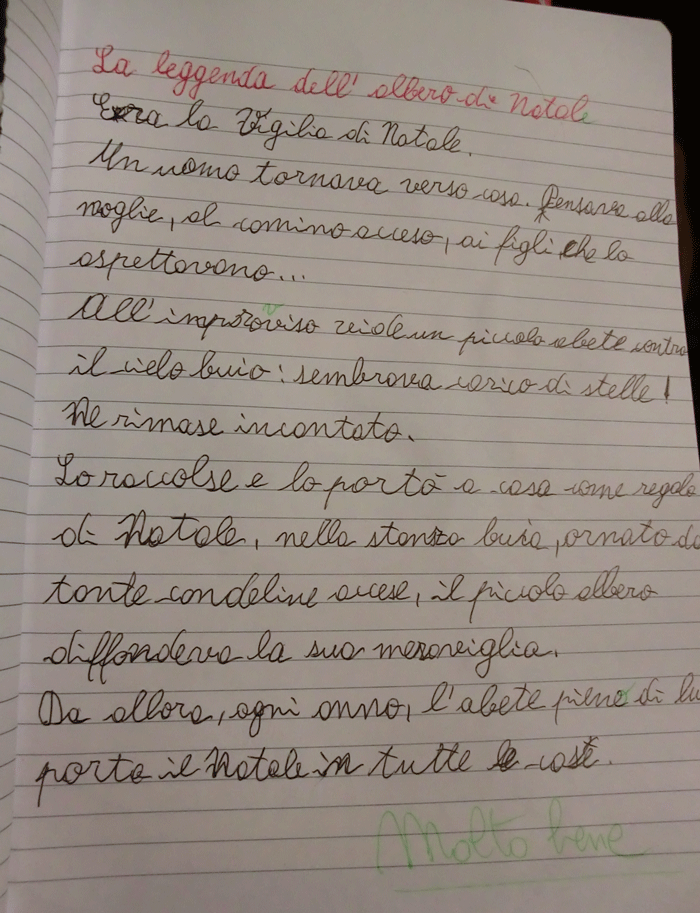 La leggenda dell'albero di Natale
Era la Vigilia di Natale.
Un uomo tornava verso casa. Pensava alla
moglie, al camino acceso, ai figli che lo
aspettavano...
All'improvviso vide un piccolo abete contro
il cielo buio: sembrava carico di stelle!
Ne rimase incantato.
Lo raccolse e lo portò a casa come regalo
di Natale, nella stanza buia, ornato da
tante candeline accese, il piccolo albero
diffondeva la sua meraviglia.
Da allora, ogni anno, l'abete pieno di lu
porta il Natale in tutte le case.
Molto bene